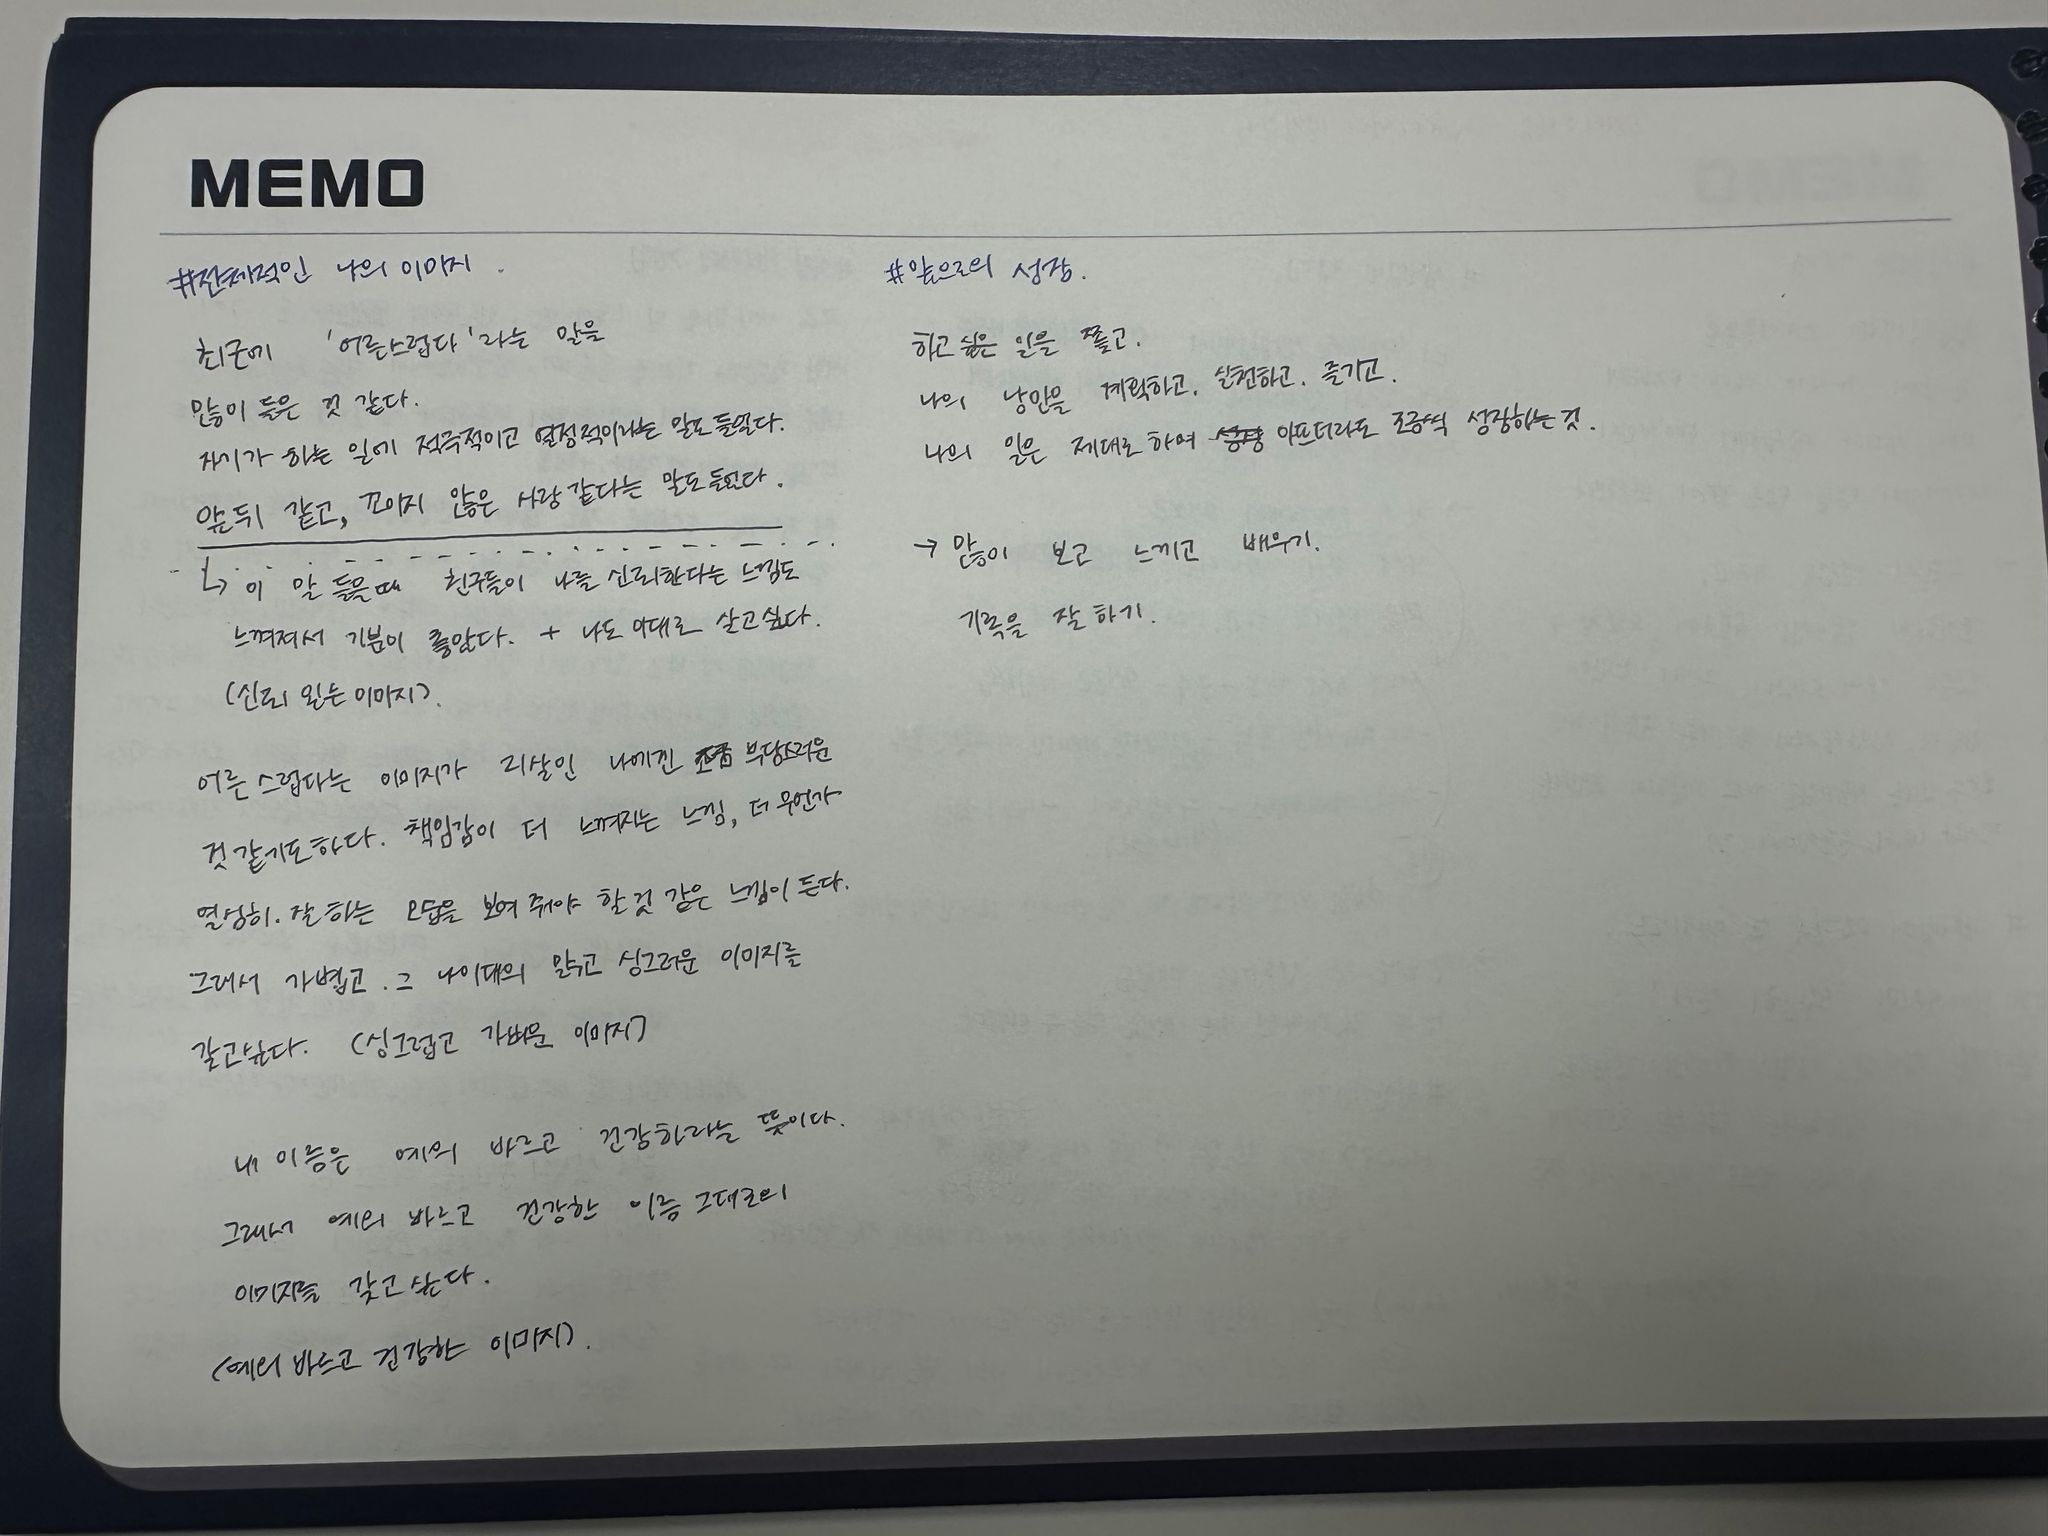 MEMO
#전체적인 나의 이미지.
최근에 '어른스럽다'라는 말을
많이 들은 것 같다.
자기가 하는 일에 적극적이고 열정적이라는 말도 들었다.
앞뒤 같고, 꼬이지 않은 사람 같다는 말도 들었다.
↳ 이 말 들을때 친구들이 나를 신뢰한다는 느낌도
느껴져서 기분이 좋았다. + 나도 이대로 살고싶다.
(신뢰 있는 이미지).
어른스럽다는 이미지가 21살인 나에겐 조금 부담스러운
것 같기도하다. 책임감이 더 느껴지는 느낌, 더 무언가
열심히. 잘 하는 모습을 보여 줘야 할 것 같은 느낌이 든다.
그래서 가볍고. 그 나이대의 맑고 싱그러운 이미지를
갖고싶다. (싱그럽고 가벼운 이미지)
내 이름은 예의 바르고 건강하라는 뜻이다.
그래서 예의 바르고 건강한 이름 그대로의
이미지를 갖고 싶다.
(예의 바르고 건강한 이미지).
#앞으로의 성장.
하고싶은 일을 쫓고.
나의 낭만을 계획하고. 실천하고. 즐기고.
나의 일은 제대로 하며 아프더라도 조금씩 성장하는 것.
→ 많이 보고 느끼고 배우기.
기록을 잘 하기.